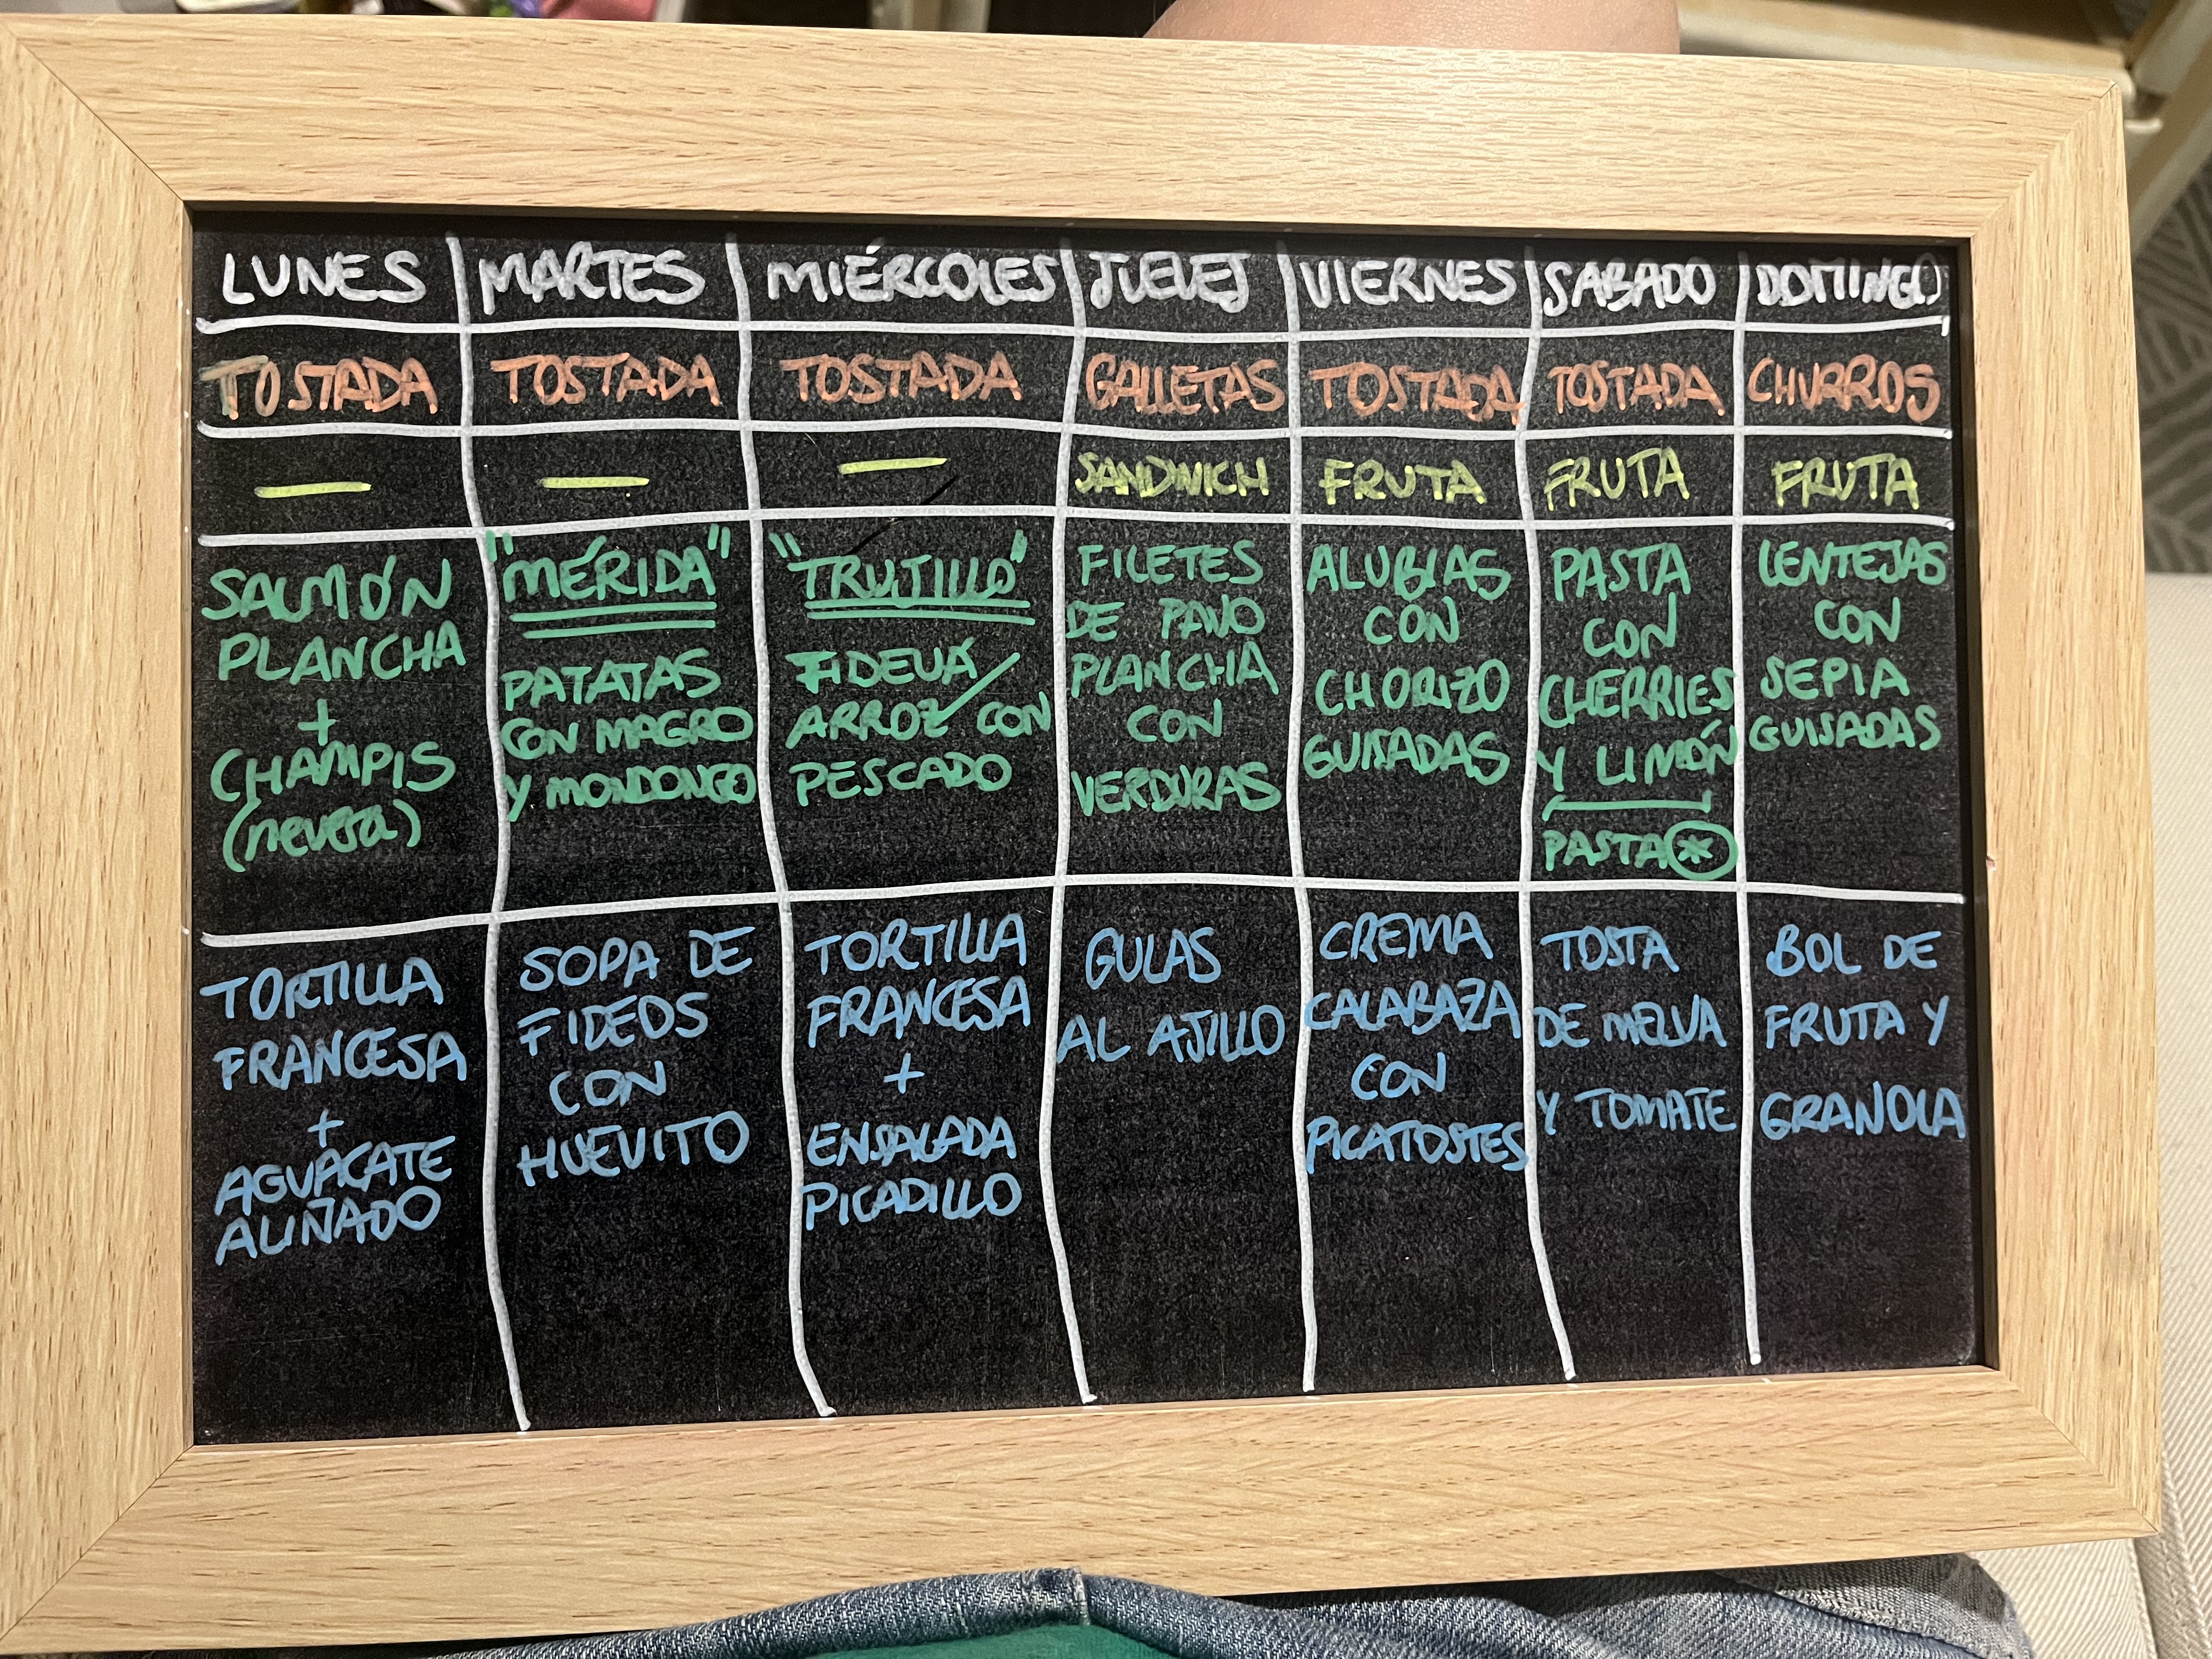 LUNES MARTES MIÉRCOLES JUEVES VIERNES SABADO DOMINGO
TOSTADA TOSTADA TOSTADA GALLETAS TOSTADA TOSTADA CHURROS
— — — SANDWICH FRUTA FRUTA FRUTA
SALMÓN
PLANCHA
+
CHAMPIS
(nevera)
"MÉRIDA"
PATATAS
CON MAGRO
Y MONDONGO
"TRUJILLO"
FIDEUÁ/
ARROZ CON
PESCADO
FILETES
DE PAVO
PLANCHA
CON
VERDURAS
ALUBIAS
CON
CHORIZO
GUISADAS
PASTA
CON
CHERRIES
Y LIMÓN
PASTA *
LENTEJAS
CON
SEPIA
GUISADAS
TORTILLA
FRANCESA
+
AGUACATE
ALIÑADO
SOPA DE
FIDEOS
CON
HUEVITO
TORTILLA
FRANCESA
+
ENSALADA
PICADILLO
GULAS
AL AJILLO
CREMA
CALABAZA
CON
PICATOSTES
TOSTA
DE MELVA
Y TOMATE
BOL DE
FRUTA Y
GRANOLA